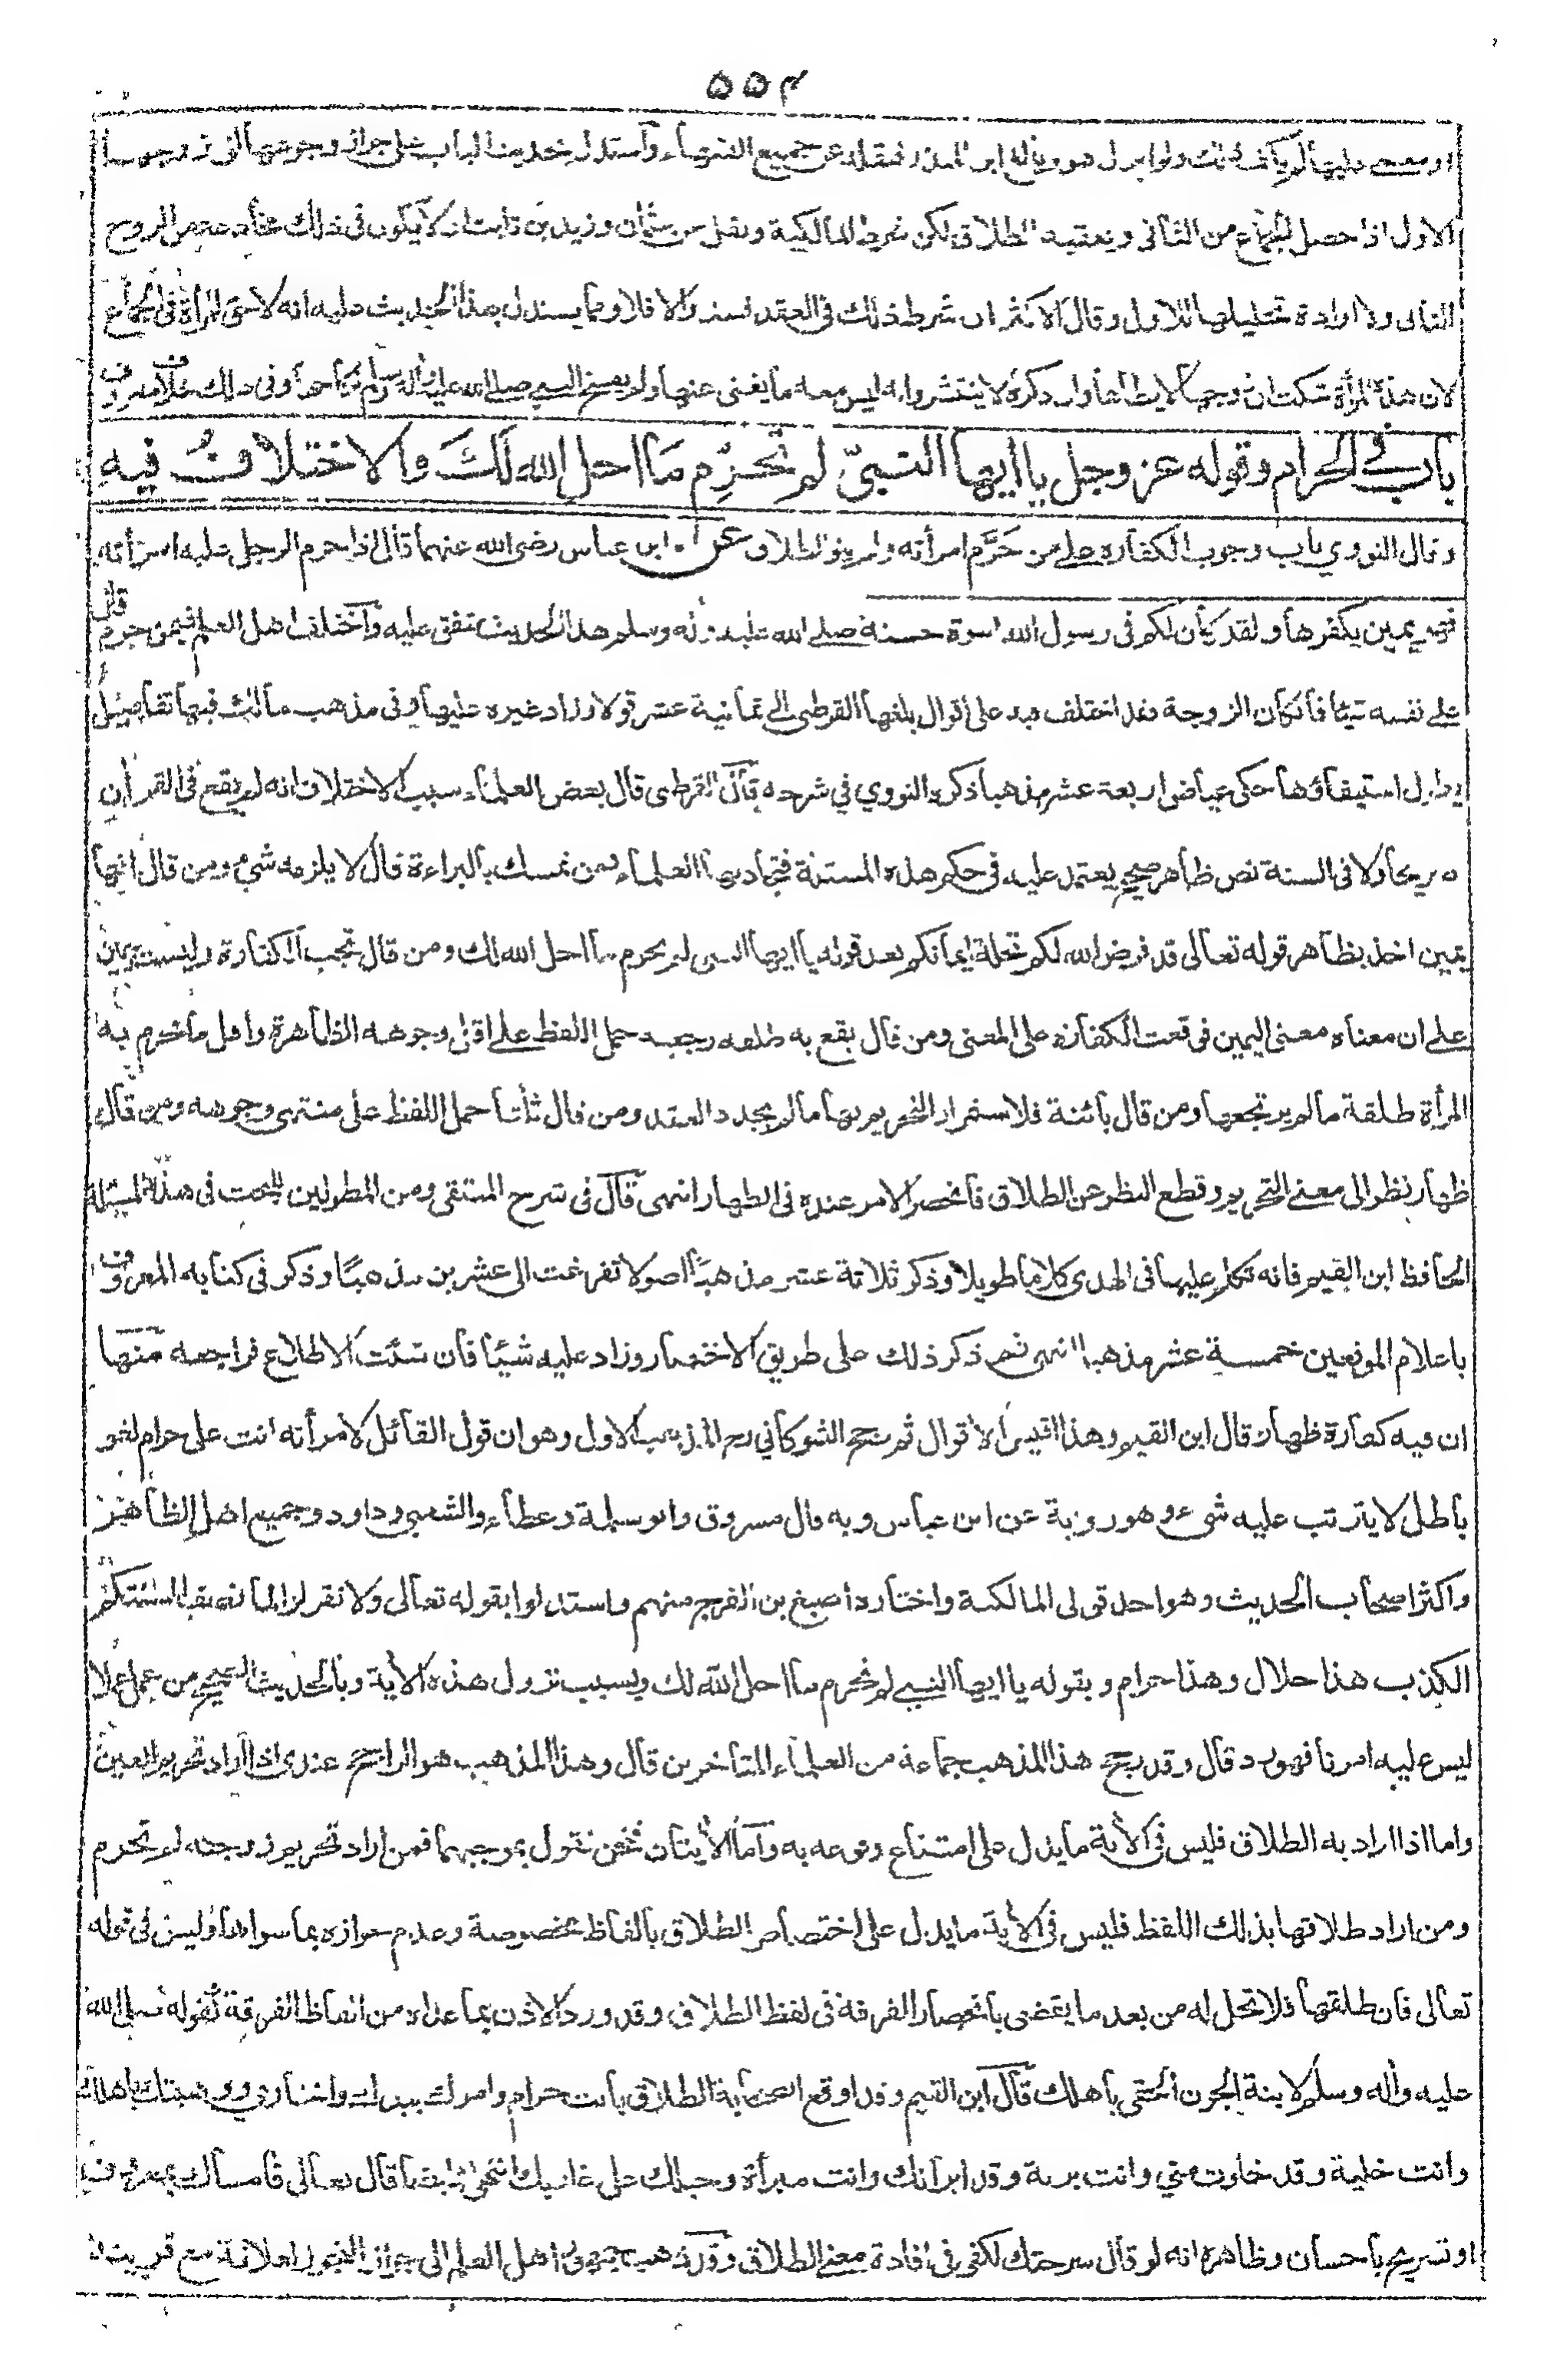 ٥٥٣
عن جميع الفقهاء واستدل بحديث الباب على جواز رجوعها الى زوجها
الاول اذا حصل الجماع من الثاني ويعقبه الطلاق لكن شرط المالكية ونقل عن عثمان وزيد بن ثابت ان لا يكون في ذلك مخادعة من الزوج
الثاني ولا ارادة تحليلها للاول وقال الاكثر ان شرط ذلك في العقد فسد والا فلا ومما يستدل بهذا الحديث عليه انه لا حق للمرأة في الجماع
لان هذه المرأة شكت ان زوجها لا يطأها وان ذكره لا ينتشر وانه ليس معه ما يغني عنها ولم يفسخ النبي صلى الله عليه وآله وسلم نكاحها وفي ذلك خلاف معروف
باب في الحرام وقوله عز وجل يا ايها النبي لم تحرم ما احل الله لك والاختلاف فيه
وقال النووي باب وجوب الكفارة على من حرم امرأته ولم ينو الطلاق عن ابن عباس رضي الله عنهما قال اذا حرم الرجل عليه امرأته
فهي يمين يكفرها وقال لقد كان لكم في رسول الله اسوة حسنة صلى الله عليه وآله وسلم هذا الحديث متفق عليه واختلف اهل العلم فيمن حرم
على نفسه شيئا فان كان الزوجة فقد اختلف فيه على اقوال بلغها القرطبي الى ثمانية عشر قولا وزاد غيره عليها وفي مذهب مالك فيها تفاصيل
يطول استيفاؤها حكى عياض اربعة عشر مذهبا ذكره النووي في شرحه قال القرطبي قال بعض العلماء سبب الاختلاف انه لم يقع في القرآن
صريحا ولا في السنة نص ظاهر صحيح يعتمد عليه في حكم هذه المسئلة فتجاذبها العلماء فمن تمسك بالبراءة قال لا يلزمه شيء ومن قال انها
يمين اخذ بظاهر قوله تعالى قد فرض الله لكم تحلة ايمانكم بعد قوله يا ايها النبي لم تحرم ما احل الله لك ومن قال تجب الكفارة وليست بيمين
على ان معناه معنى اليمين فوقعت الكفارة على المعنى ومن قال يقع به طلقة رجعية حمل اللفظ على اقل وجوهه الظاهرة واقل ما تحرم به
المرأة طلقة ما لم يرتجعها ومن قال بائنة فلاستمرار التحريم بها ما لم يجدد العقد ومن قال ثلثا حمل اللفظ على منتهى وجوهه ومن قال
ظهار نظر الى معنى التحريم وقطع النظر عن الطلاق فانحصر الامر عنده في الظهار انتهى قال في شرح المنتقى ومن المطولين للبحث في هذه المسئلة
الحافظ ابن القيم فانه تكلم عليها في الهدى كلاما طويلا وذكر ثلاثة عشر مذهبا اصولا تفرعت الى عشرين مذهبا وذكر في كتابه المعروف
باعلام الموقعين خمسة عشر مذهبا انتهى ثم ذكر ذلك على طريق الاختصار وزاد عليه شيئا فان شئت الاطلاع فراجعه منها
ان فيه كفارة ظهار قال ابن القيم وهذا اقيس الاقوال ثم رجح الشوكاني رح المذهب الاول وهو ان قول القائل لامرأته انت علي حرام لغو
باطل لا يترتب عليه شيء وهو رواية عن ابن عباس وبه قال مسروق وابو سلمة وعطاء والشعبي وداود وجميع اهل الظاهر
واكثر اصحاب الحديث وهو احد قولي المالكية واختاره اصبغ بن الفرج منهم واستدلوا بقوله تعالى ولا تقولوا لما تصف السنتكم
الكذب هذا حلال وهذا حرام وبقوله يا ايها النبي لم تحرم ما احل الله لك وبسبب نزول هذه الآية وبالحديث الصحيح من عمل عملا
ليس عليه امرنا فهو رد قال وقد رجح هذا المذهب جماعة من العلماء المتأخرين قال وهذا المذهب هو الراجح عندي اذا اراد تحريم العين
واما اذا اراد به الطلاق فليس في الآية ما يدل على امتناع وقوعه به واما الآيتان فنحن نقول بموجبهما فمن اراد تحريم زوجته لم تحرم
ومن اراد طلاقها بذلك اللفظ فليس في الآية ما يدل على اختصاص الطلاق بالفاظ مخصوصة وعدم جوازه بما سواها وليس في قوله
تعالى فان طلقها فلا تحل له من بعد ما يقضي بانحصار الفرقة في لفظ الطلاق وقد ورد الاذن بما عداه من الفاظ الفرقة كقوله صلى الله
عليه وآله وسلم لابنة الجون الحقي باهلك قال ابن القيم وقد اوقع الصحابة الطلاق بانت حرام وامرك بيدك واختاري ووهبتك لاهلك
وانت خلية وقد خلوت مني وانت برية وقد ابرأتك وانت مبرأة وحبلك على غاربك انتهى وايضا قال تعالى فامساك بمعروف
او تسريح باحسان وظاهره انه لو قال سرحتك لكفى في افادة معنى الطلاق وقد ذهب جمهور اهل العلم الى جواز التجوز لعلاقة مع قرينة